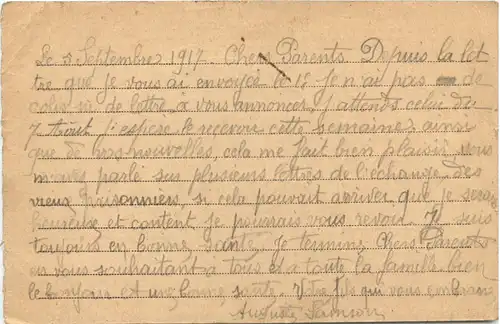 Le 5 Septembre 1917 Chers Parents Depuis la let
tre que je vous ai envoyée le 18 Je n'ai pas de
colis ni de lettre a vous annoncer j'attends celui du
7 Aout j'espere le recevoir cette semaine ainsi
que de vos nouvelles cela me fait bien plaisir vous
m'avez parlé sur plusieurs lettres de l'echange des
vieux prisonniers, si cela pouvait arriver que je serai
heureuse et content je pourrais vous revoir Je suis
toujours en bonne santé Je termine Chers Parents
en vous souhaitant a tous et a toute la famille bien
le bonjour et une bonne santé Votre fils qui vous embrasse
Auguste